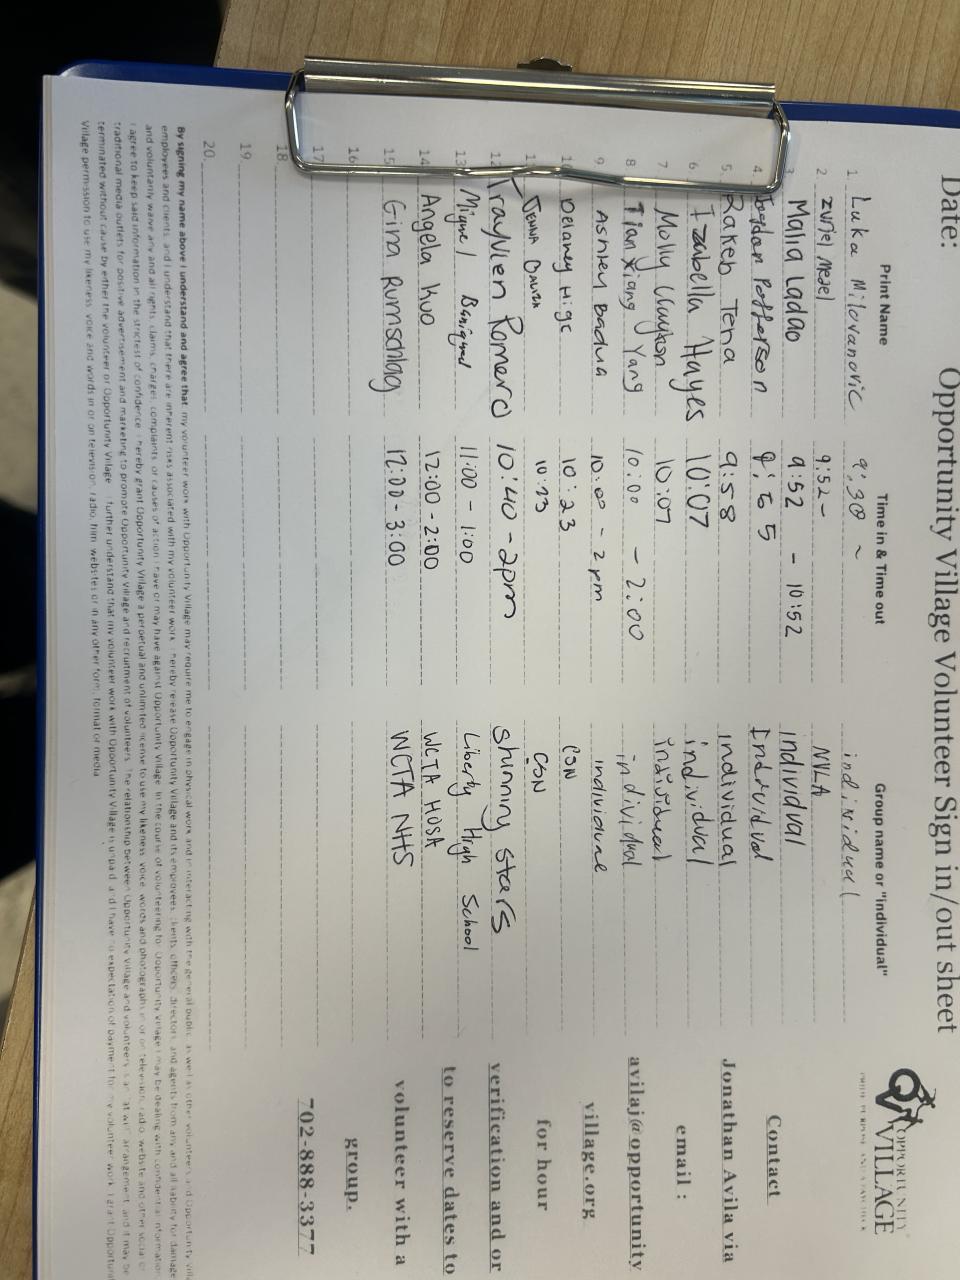 Date:
Opportunity Village Volunteer Sign in/out sheet
OPPORTUNITY
VILLAGE
Print Name Time in & Time out Group name or "individual"
1. Luka Milovanovic 9:30 ~ individual
2. 9:52 - NILA
3. Malia Ladao 9:52 - 10:52 individual
4. individual
5. Rakeb Tena 9:58 individual
6. Izabella Hayes 10:07 individual
7. Molly Clayton 10:07 individual
8. Tianxiang Yang 10:00 - 2:00 individual
9. Ashley Badua 10:00 - 2pm individual
10. Delaney 10:23 CSN
11. Jenna 10:23 CSN
12. Trayvien Romero 10:40 - 2pm Shinning Stars
13. Miguel 11:00 - 1:00 Liberty High School
14. Angela Kuo 12:00 - 2:00 WCTA HOSA
15. Gina Rumschlag 12:00 - 3:00 WCTA NHS
16.
17.
18.
19.
20.
Contact
Jonathan Avila via
email :
avilaj@opportunity
village.org
for hour
verification and or
to reserve dates to
volunteer with a
group.
702-888-3377
By signing my name above I understand and agree that: my volunteer work with Opportunity Village may require me to engage in physical work and in interacting with the general public as well as other volunteers and Opportunity
employees and clients, and I understand that there are inherent risks associated with my volunteer work. I hereby release Opportunity Village and its employees, clients, officers, directors, and agents from any and all liability for damage
and voluntarily waive any and all rights, claims, charges, complaints or causes of action I have or may have against Opportunity Village. In the course of volunteering for Opportunity Village I may be dealing with confidential information
I agree to keep said information in the strictest of confidence. I hereby grant Opportunity Village a perpetual and unlimited license to use my likeness, voice, words and photographs in or on television, radio, website and other social or
traditional media outlets for positive advertisement and marketing to promote Opportunity Village and recruitment of volunteers. The relationship between Opportunity Village and volunteers is an "at will" arrangement, and it may be
terminated without cause by either the volunteer or Opportunity Village. I further understand that my volunteer work with Opportunity Village is unpaid, and I have no expectation of payment for my volunteer work. I grant
Village permission to use my likeness, voice and words in or on television, radio, film, websites or in any other form, format or media.